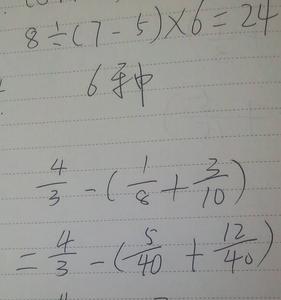 8÷(7-5)×6=24
6种
4/3 - (1/8 + 3/10)
= 4/3 - (5/40 + 12/40)